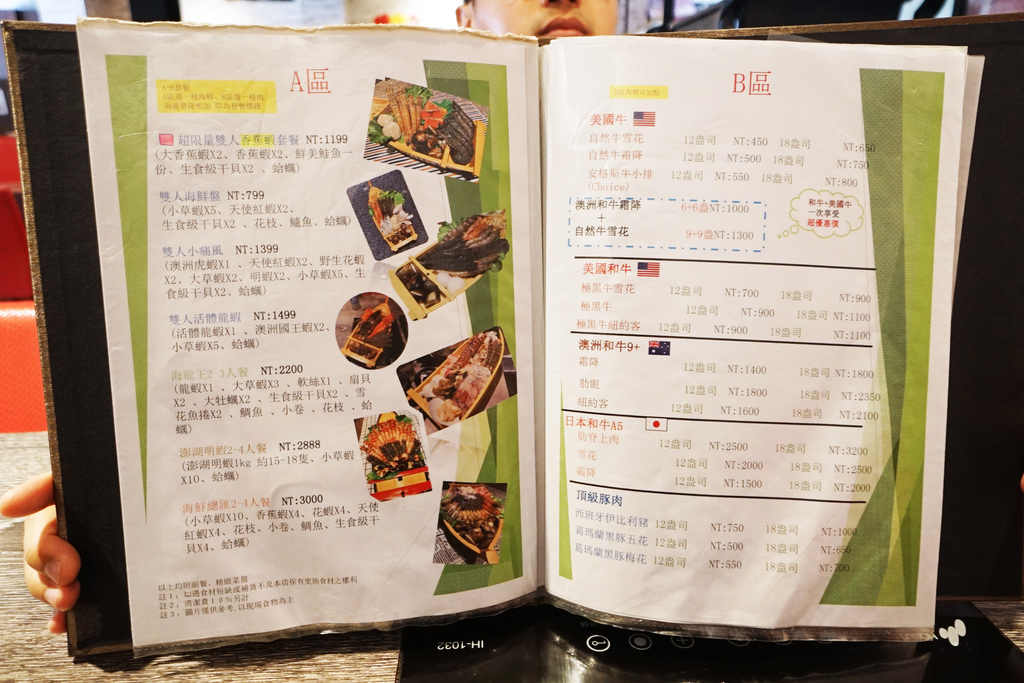 A區
6+9套餐
A區選一種海鮮、B區選一種肉
兩邊價錢相加 即為套餐價錢
超限量雙人香蕉蝦套餐 NT:1199
(大香蕉蝦X2、香蕉蝦X2、鮮美鮭魚一
份、生食級干貝X2 、蛤蠣)
雙人海鮮盤 NT:799
(小草蝦X5、天使紅蝦X2、
生食級干貝X2 、花枝、鱸魚、蛤蠣)
雙人小痛風 NT:1399
(澳洲虎蝦X1 、天使紅蝦X2、野生花蝦
X2、大草蝦X2、明蝦X2、小草蝦X5、生
食級干貝X2、蛤蠣)
雙人活體龍蝦 NT:1499
(活體龍蝦X1 、澳洲國王蝦X2、
小草蝦X5、蛤蠣)
海龍王2-3人餐 NT:2200
(龍蝦X1 、大草蝦X3 、軟絲X1 、扇貝
X2 、大牡蠣X2 、生食級干貝X2 、雪
花魚捲X2 、鯛魚 、小卷 、花枝 、蛤
蠣)
澎湖明蝦2-4人餐 NT:2888
(澎湖明蝦1kg 約15-18隻、小草蝦
X10、蛤蠣)
海鮮總匯2-4人餐 NT:3000
(小草蝦X10、香蕉蝦X4、花蝦X4、天使
紅蝦X4、花枝、小卷、鯛魚、生食級干
貝X4、蛤蠣)
以上均附副餐、精緻菜盤
註1：如遇食材短缺或補貨不及本店保有更換食材之權利
註2：清潔費10%另計
註3：圖片僅供參考,以現場食物為主
B區
美國牛
自然牛雪花 12盎司 NT:450 18盎司 NT:650
自然牛霜降 12盎司 NT:500 18盎司 NT:750
安格斯牛小排 12盎司 NT:550 18盎司 NT:800
(Choice)
澳洲和牛霜降 6+6盎 NT:1000
+
自然牛雪花 9+9盎 NT:1300
和牛+美國牛
一次享受
超優惠價
美國和牛
極黑牛雪花 12盎司 NT:700 18盎司 NT:900
極黑牛 12盎司 NT:900 18盎司 NT:1100
極黑牛紐約客 12盎司 NT:900 18盎司 NT:1100
澳洲和牛9+
霜降 12盎司 NT:1400 18盎司 NT:1800
肋眼 12盎司 NT:1800 18盎司 NT:2350
紐約客 12盎司 NT:1600 18盎司 NT:2100
日本和牛A5
肋脊上肉 12盎司 NT:2500 18盎司 NT:3200
雪花 12盎司 NT:2000 18盎司 NT:2500
霜降 12盎司 NT:1500 18盎司 NT:2000
頂級豚肉
西班牙伊比利豬 12盎司 NT:750 18盎司 NT:1000
葛瑪蘭黑豚五花 12盎司 NT:500 18盎司 NT:650
葛瑪蘭黑豚梅花 12盎司 NT:550 18盎司 NT:700
IH-1032